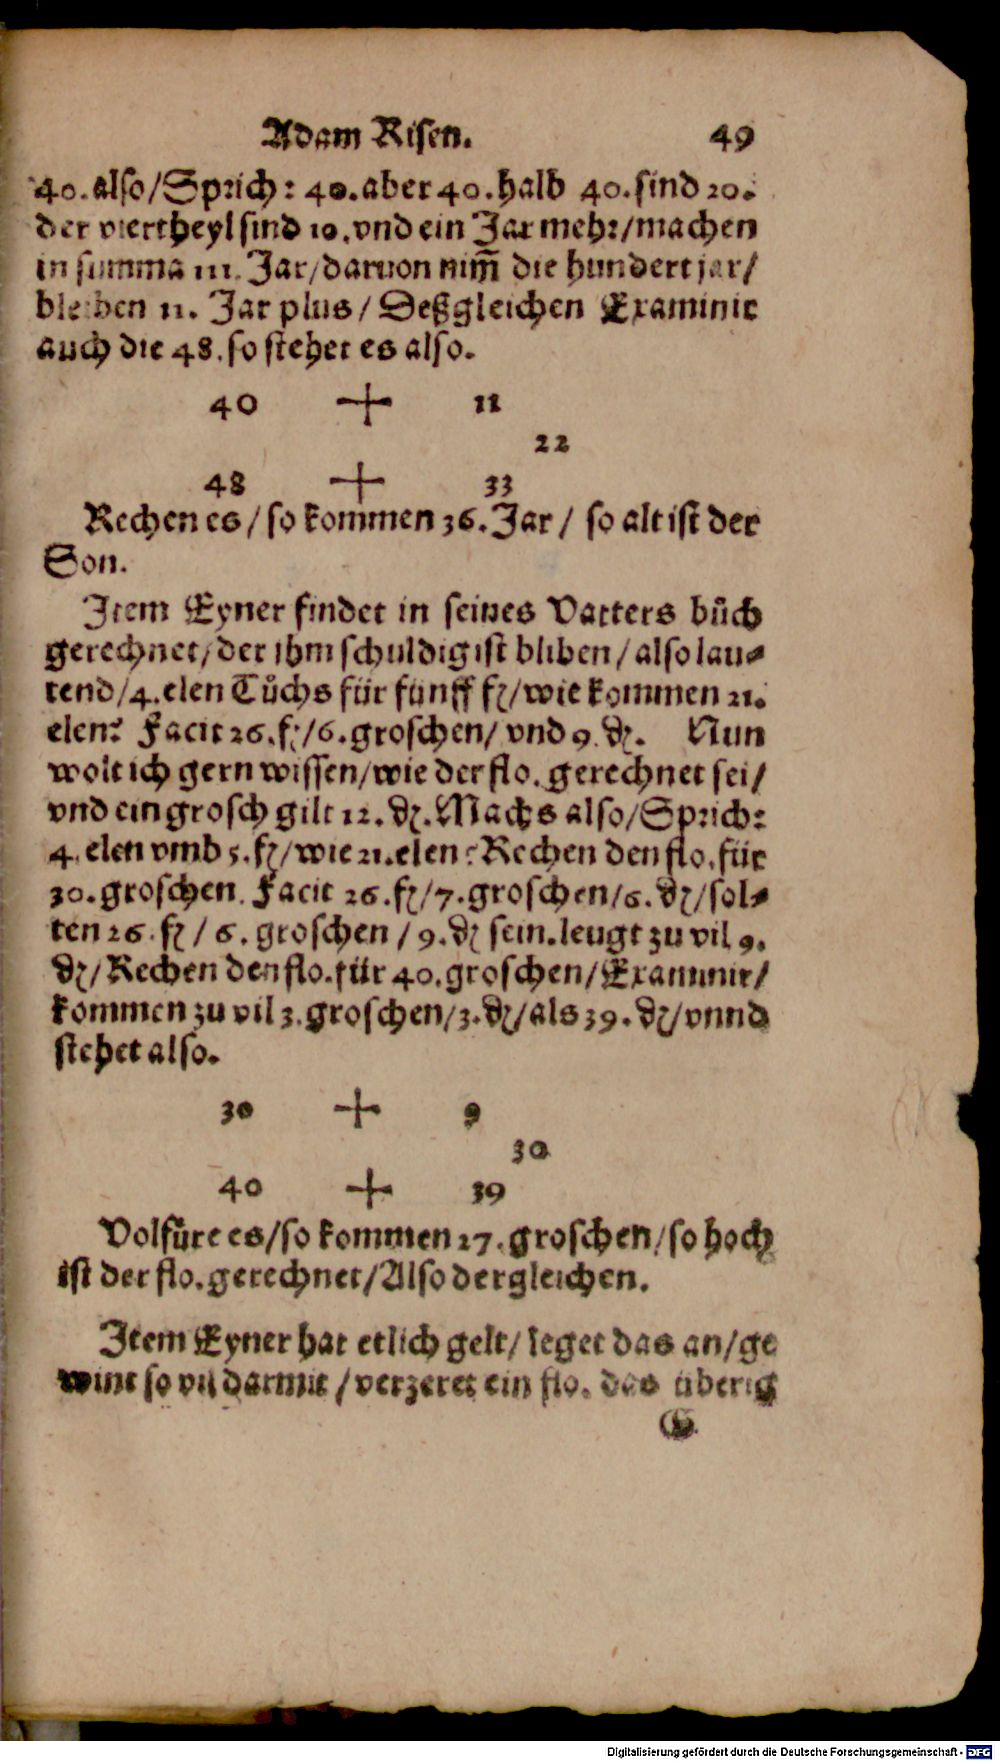 Adam Risen. 49
40. also/Sprich: 40. aber 40. halb 40. sind 20.
der viertheyl sind 10. vnd ein Jar mehr/machen
in summa 111. Jar/daruon nim̃ die hundert jar/
bleiben 11. Jar plus/ Deßgleichen Examinir
auch die 48. so stehet es also.
40 + 11
22
48 + 33
Rechen es/so kommen 36. Jar/ so alt ist der
Son.
Item Eyner findet in seines Vatters bůch
gerechnet/der ihm schuldig ist bliben/also lau-
tend/4. elen Tůchs für fünff fl/wie kommen 21.
elen? Facit 26. fl/6. groschen/ vnd 9. ₰. Nun
wolt ich gern wissen/wie der flo. gerechnet sei/
vnd ein grosch gilt 12. ₰. Machs also/Sprich:
4. elen vmb 5. fl/wie 21. elen? Rechen den flo. für
30. groschen. Facit 26. fl/7. groschen/6. ₰/sol-
ten 26. fl/ 6. groschen/9. ₰ sein. leugt zu vil 9.
₰/Rechen den flo. für 40. groschen/Examinir/
kommen zu vil 3. groschen/3. ₰/als 39. ₰/vnnd
stehet also.
30 + 9
30
40 + 39
Volfüre es/so kommen 27. groschen/so hoch
ist der flo. gerechnet/Also dergleichen.
Item Eyner hat etlich gelt/ leget das an/ge
wint so vil darmit/verzeret ein flo. das überig
G
Digitalisierung gefördert durch die Deutsche Forschungsgemeinschaft - DFG